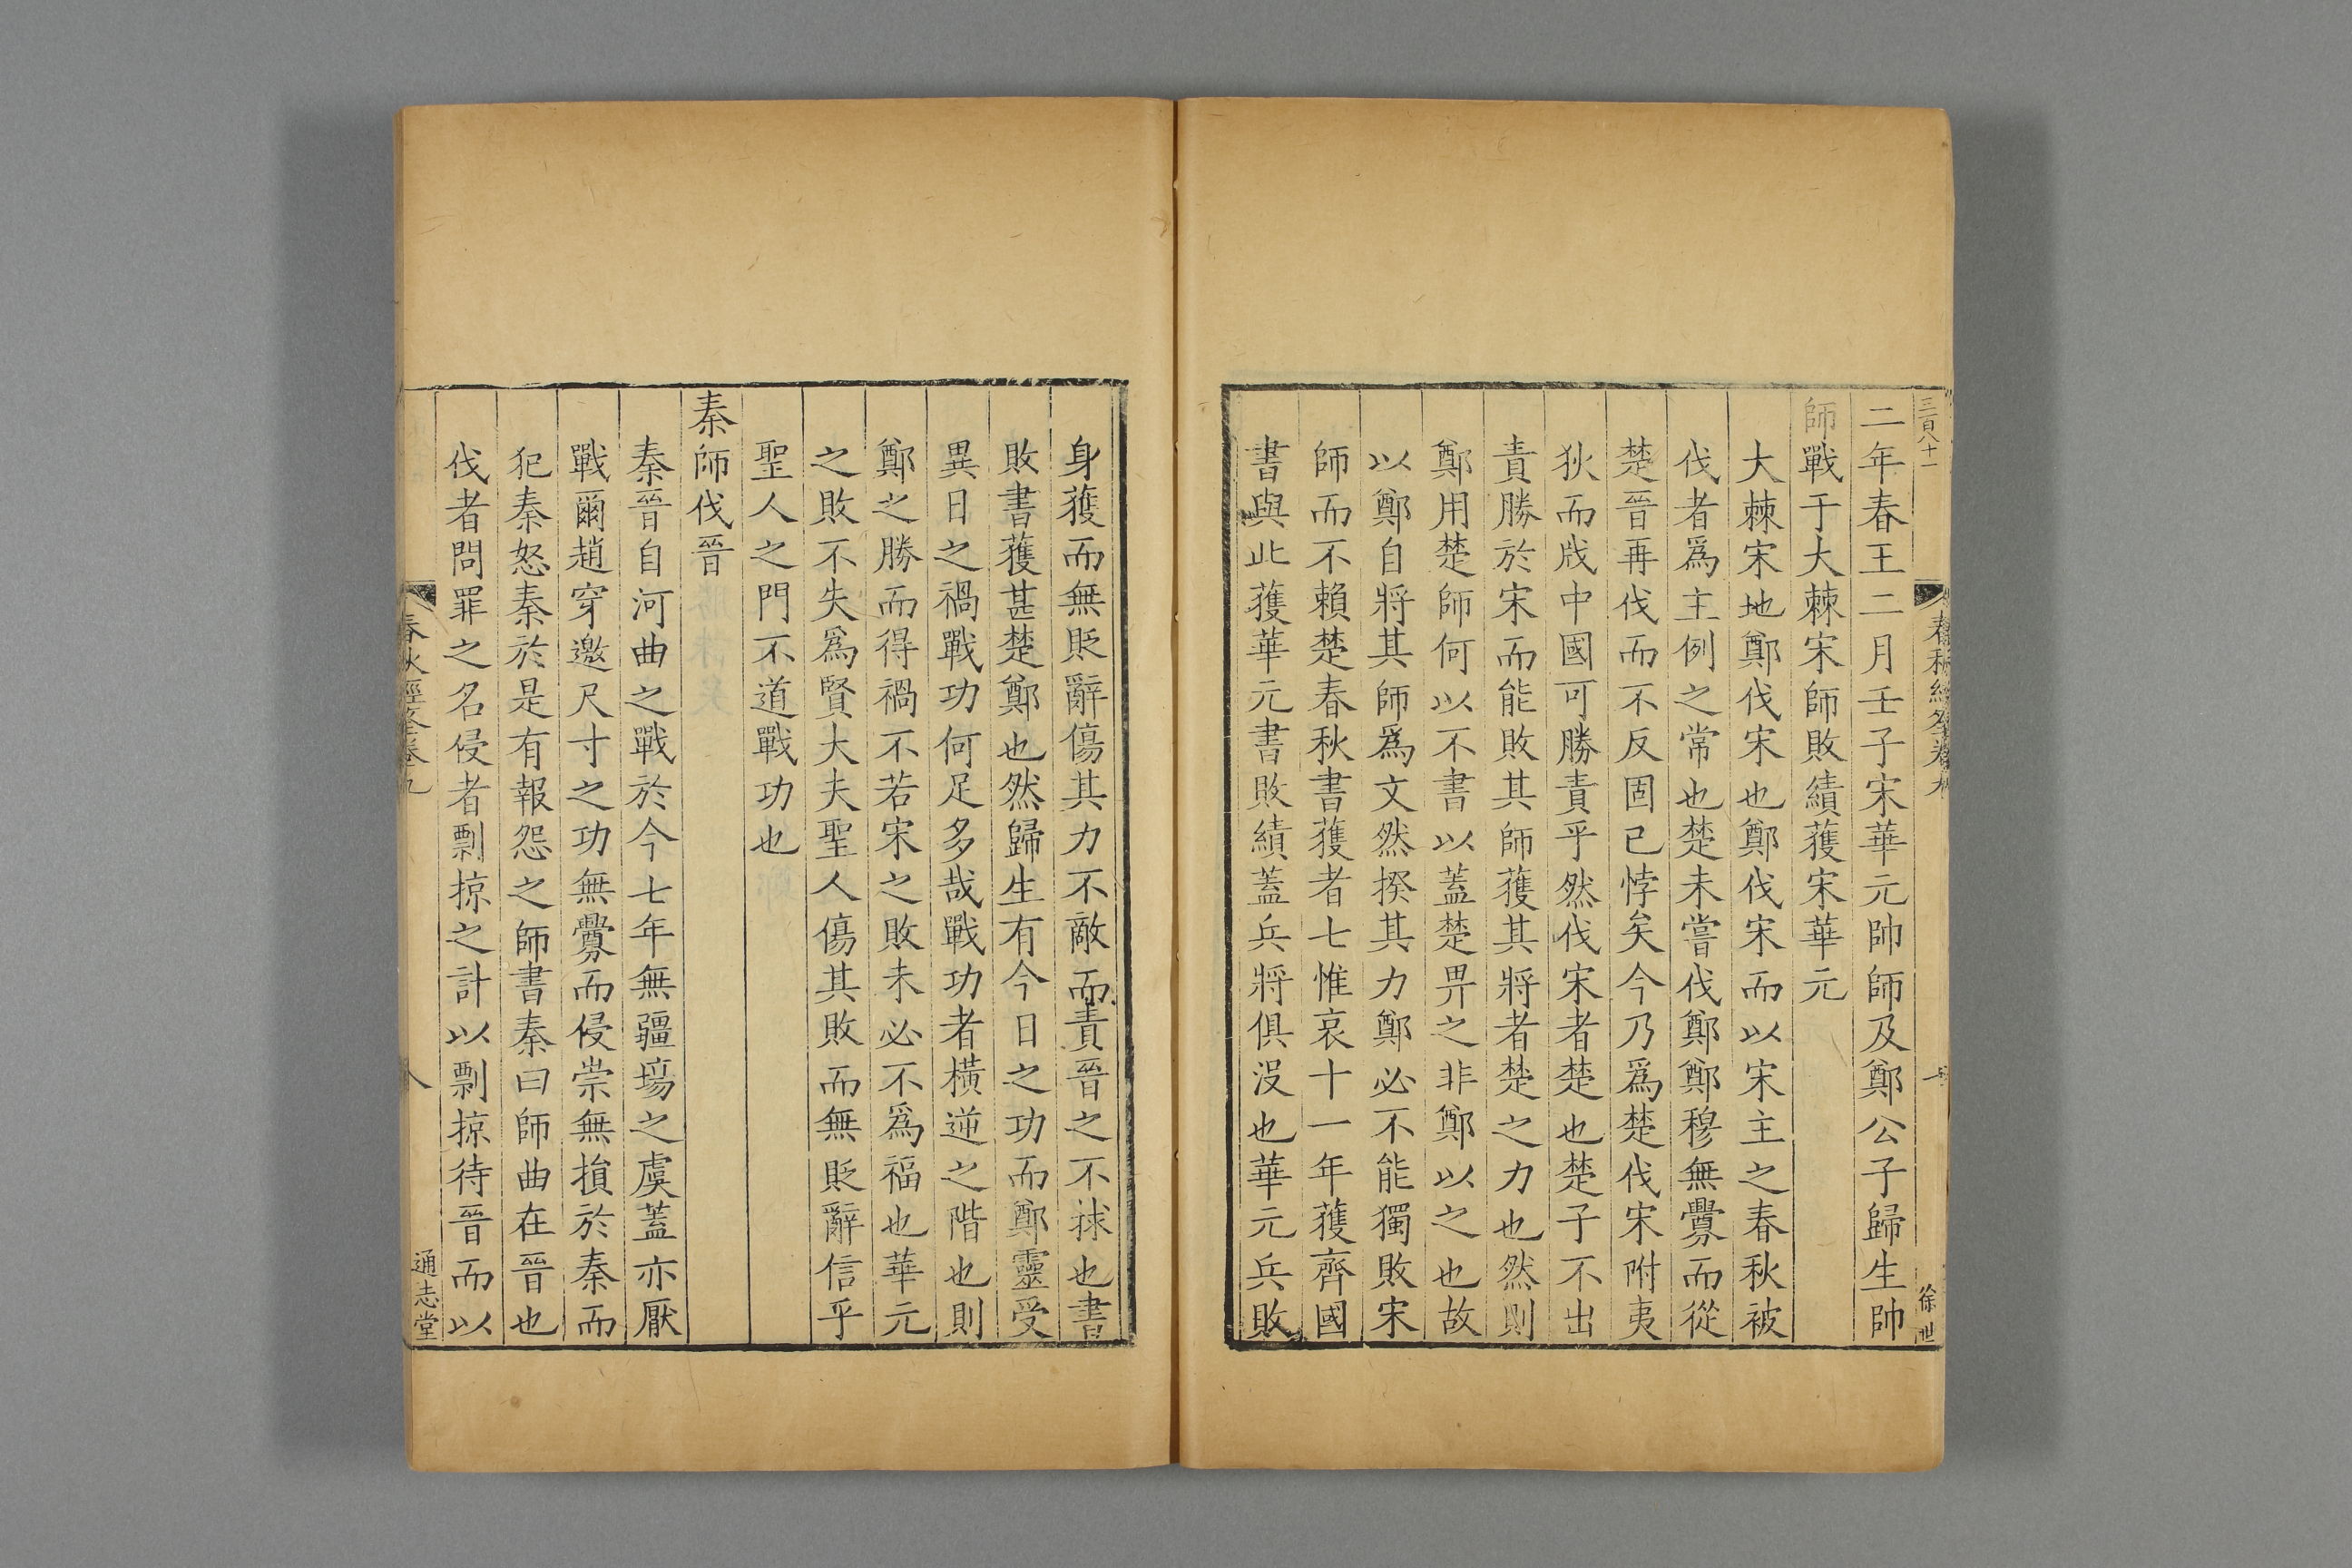 三百八十一
二年春王二月壬子宋華元帥師及鄭公子歸生帥
師戰于大棘宋師敗績獲宋華元
大棘宋地鄭伐宋也鄭伐宋而以宋主之春秋被
伐者爲主例之常也楚未嘗伐鄭鄭穆無釁而從
楚晉再伐而不反固已悖矣今乃爲楚伐宋附夷
狄而戕中國可勝責乎然伐宋者楚也楚子不出
責勝於宋而能敗其師獲其將者楚之力也然則
鄭用楚師何以不書以蓋楚畀之非鄭以之也故
以鄭自將其師爲文然揆其力鄭必不能獨敗宋
師而不賴楚春秋書獲者七惟哀十一年獲齊國
書與此獲華元書敗績蓋兵將俱沒也華元兵敗
徐世
身獲而無貶辭傷其力不敵而責晉之不捄也書
敗書獲甚楚鄭也然歸生有今日之功而鄭靈受
異日之禍戰功何足多哉戰功者橫逆之階也則
鄭之勝而得禍不若宋之敗未必不爲福也華元
之敗不失爲賢大夫聖人傷其敗而無貶辭信乎
聖人之門不道戰功也
秦師伐晉
秦晉自河曲之戰於今七年無疆埸之虞蓋亦厭
戰爾趙穿邀尺寸之功無釁而侵崇無損於秦而
犯秦怒秦於是有報怨之師書秦曰師曲在晉也
伐者問罪之名侵者剽掠之計以剽掠待晉而以
春秋經筌卷九
八
通志堂